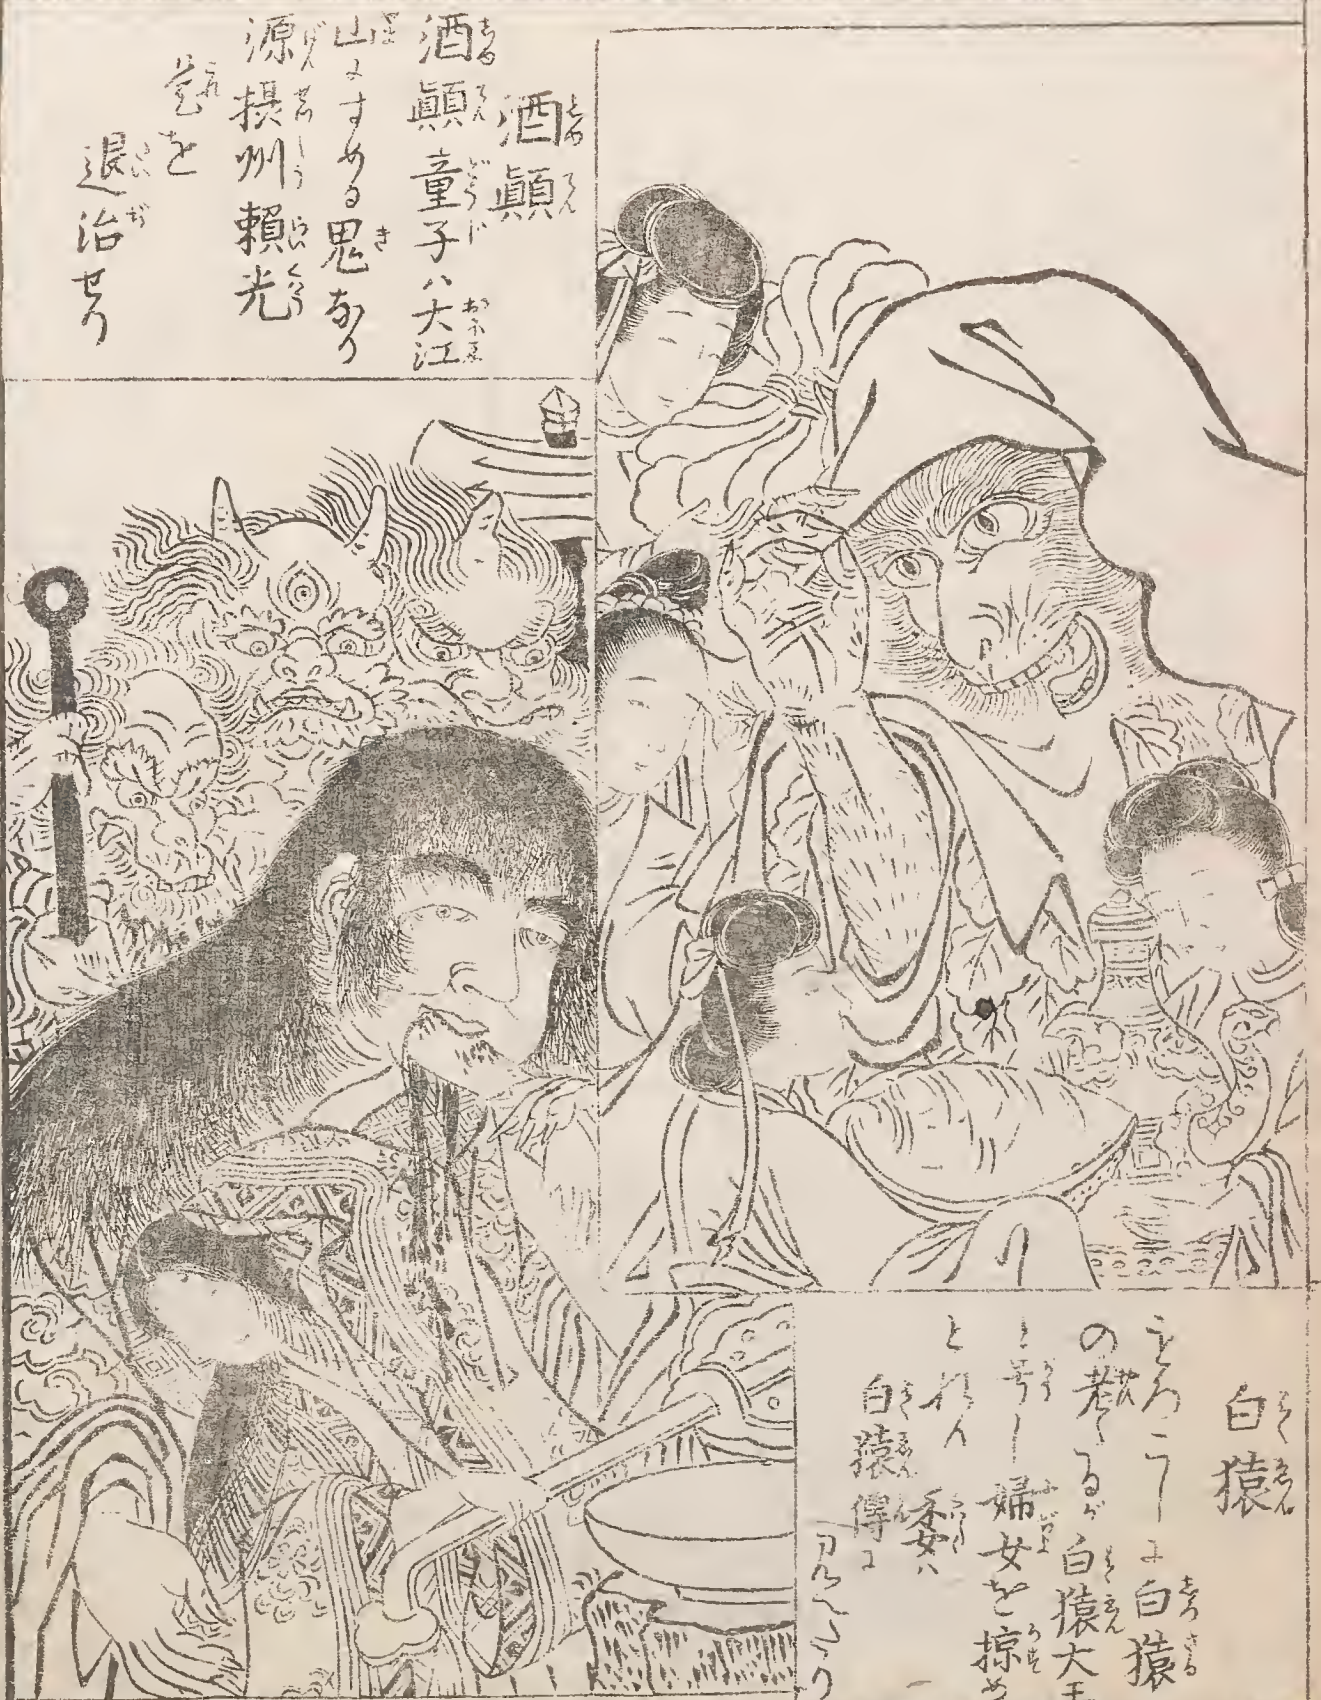 酒顚
酒顚童子ハ大江
山にすめる鬼なり
源摂州頼光
是を
退治せり
白猿
もろこしに白猿
の老たるが白猿大王
と号し婦女を掠め
とれり 委ハ
白猿傳に
見へたり